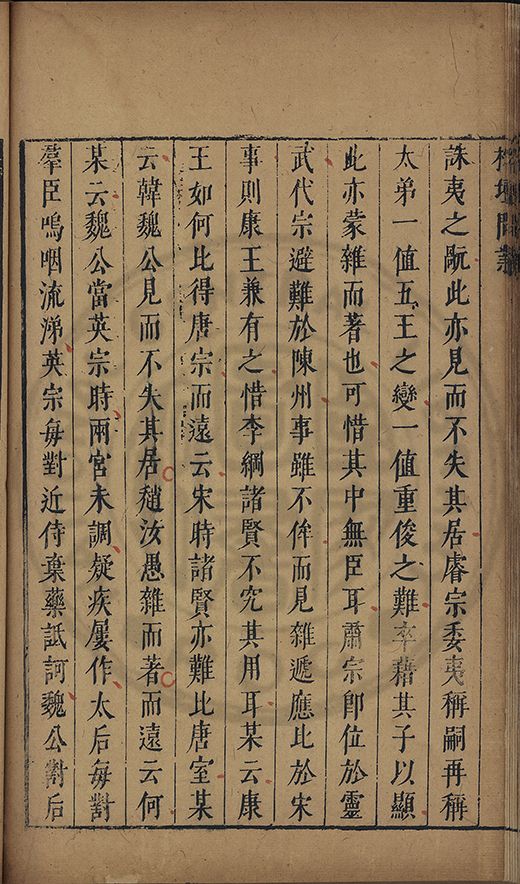 榕壇問業
誅夷之阨此亦見而不失其居睿宗委夷稱嗣再稱
太弟一值五王之變一值重俊之難卒藉其子以顯
此亦蒙雜而著也可惜其中無臣耳肅宗卽位於靈
武代宗避難於陳州事雖不侔而見雜遞應比於宋
事則康王兼有之惜李綱諸賢不究其用耳某云康
王如何比得唐宗而遠云宋時諸賢亦難比唐室某
云韓魏公見而不失其居趙汝愚雜而著而遠云何
某云魏公當英宗時兩宮未調疑疾屢作太后每對
羣臣嗚咽流涕英宗每對近侍棄藥詆訶魏公對后